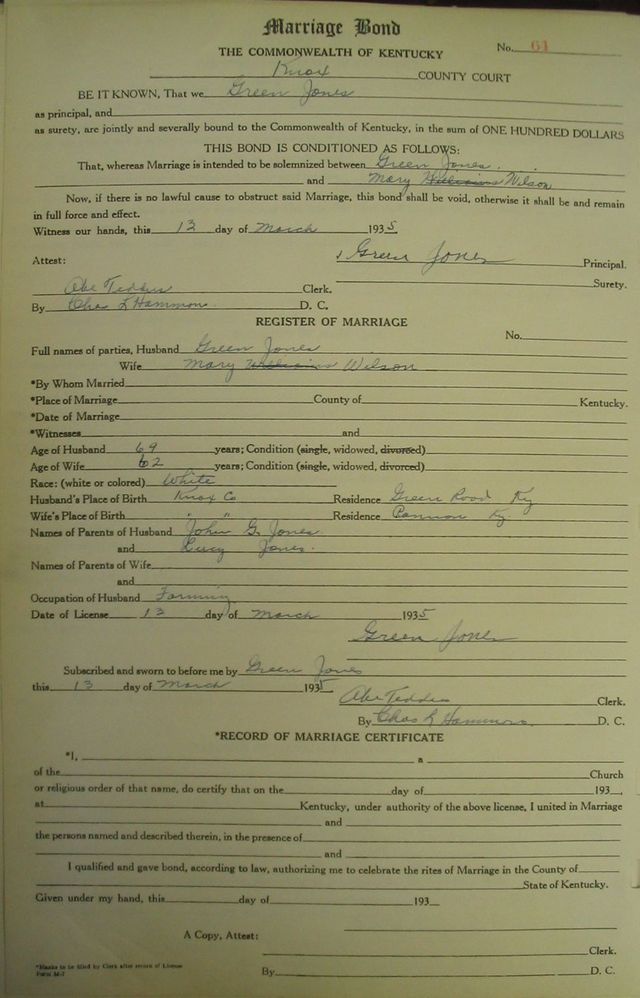 Marriage Bond
No. 61
THE COMMONWEALTH OF KENTUCKY
Knox COUNTY COURT
BE IT KNOWN, That we Green Jones
as principal, and
as surety, are jointly and severally bound to the Commonwealth of Kentucky, in the sum of ONE HUNDRED DOLLARS
THIS BOND IS CONDITIONED AS FOLLOWS:
That, whereas Marriage is intended to be solemnized between Green Jones.
and Mary Williams Wilson
Now, if there is no lawful cause to obstruct said Marriage, this bond shall be void, otherwise it shall be and remain
in full force and effect.
Witness our hands, this 13 day of March 1935
Attest: Green Jones Principal.
Surety.
Abe Teddus Clerk.
By Chas L Hammon D. C.
REGISTER OF MARRIAGE
No.
Full names of parties, Husband Green Jones
Wife Mary Williams Wilson
*By Whom Married
*Place of Marriage County of Kentucky.
*Date of Marriage
*Witnesses and
Age of Husband 69 years; Condition (single, widowed, divorced)
Age of Wife 62 years; Condition (single, widowed, divorced)
Race: (white or colored) White
Husband's Place of Birth Knox Co Residence Green Road Ky
Wife's Place of Birth " " Residence Ky
Names of Parents of Husband John G. Jones
and Lucy Jones.
Names of Parents of Wife
and
Occupation of Husband Farming
Date of License 13 day of March 1935
Green Jones
Subscribed and sworn to before me by Green Jones
this 13 day of March 1935
Abe Teddus Clerk.
By Chas L Hammons. D. C.
*RECORD OF MARRIAGE CERTIFICATE
*I, a
of the Church
or religious order of that name, do certify that on the day of 193
at Kentucky, under authority of the above license, I united in Marriage
and
the persons named and described therein, in the presence of
and
I qualified and gave bond, according to law, authorizing me to celebrate the rites of Marriage in the County of
State of Kentucky.
Given under my hand, this day of 193
A Copy, Attest:
Clerk.
*Blanks to be filled by Clerk after return of License
Form M-7
By D. C.